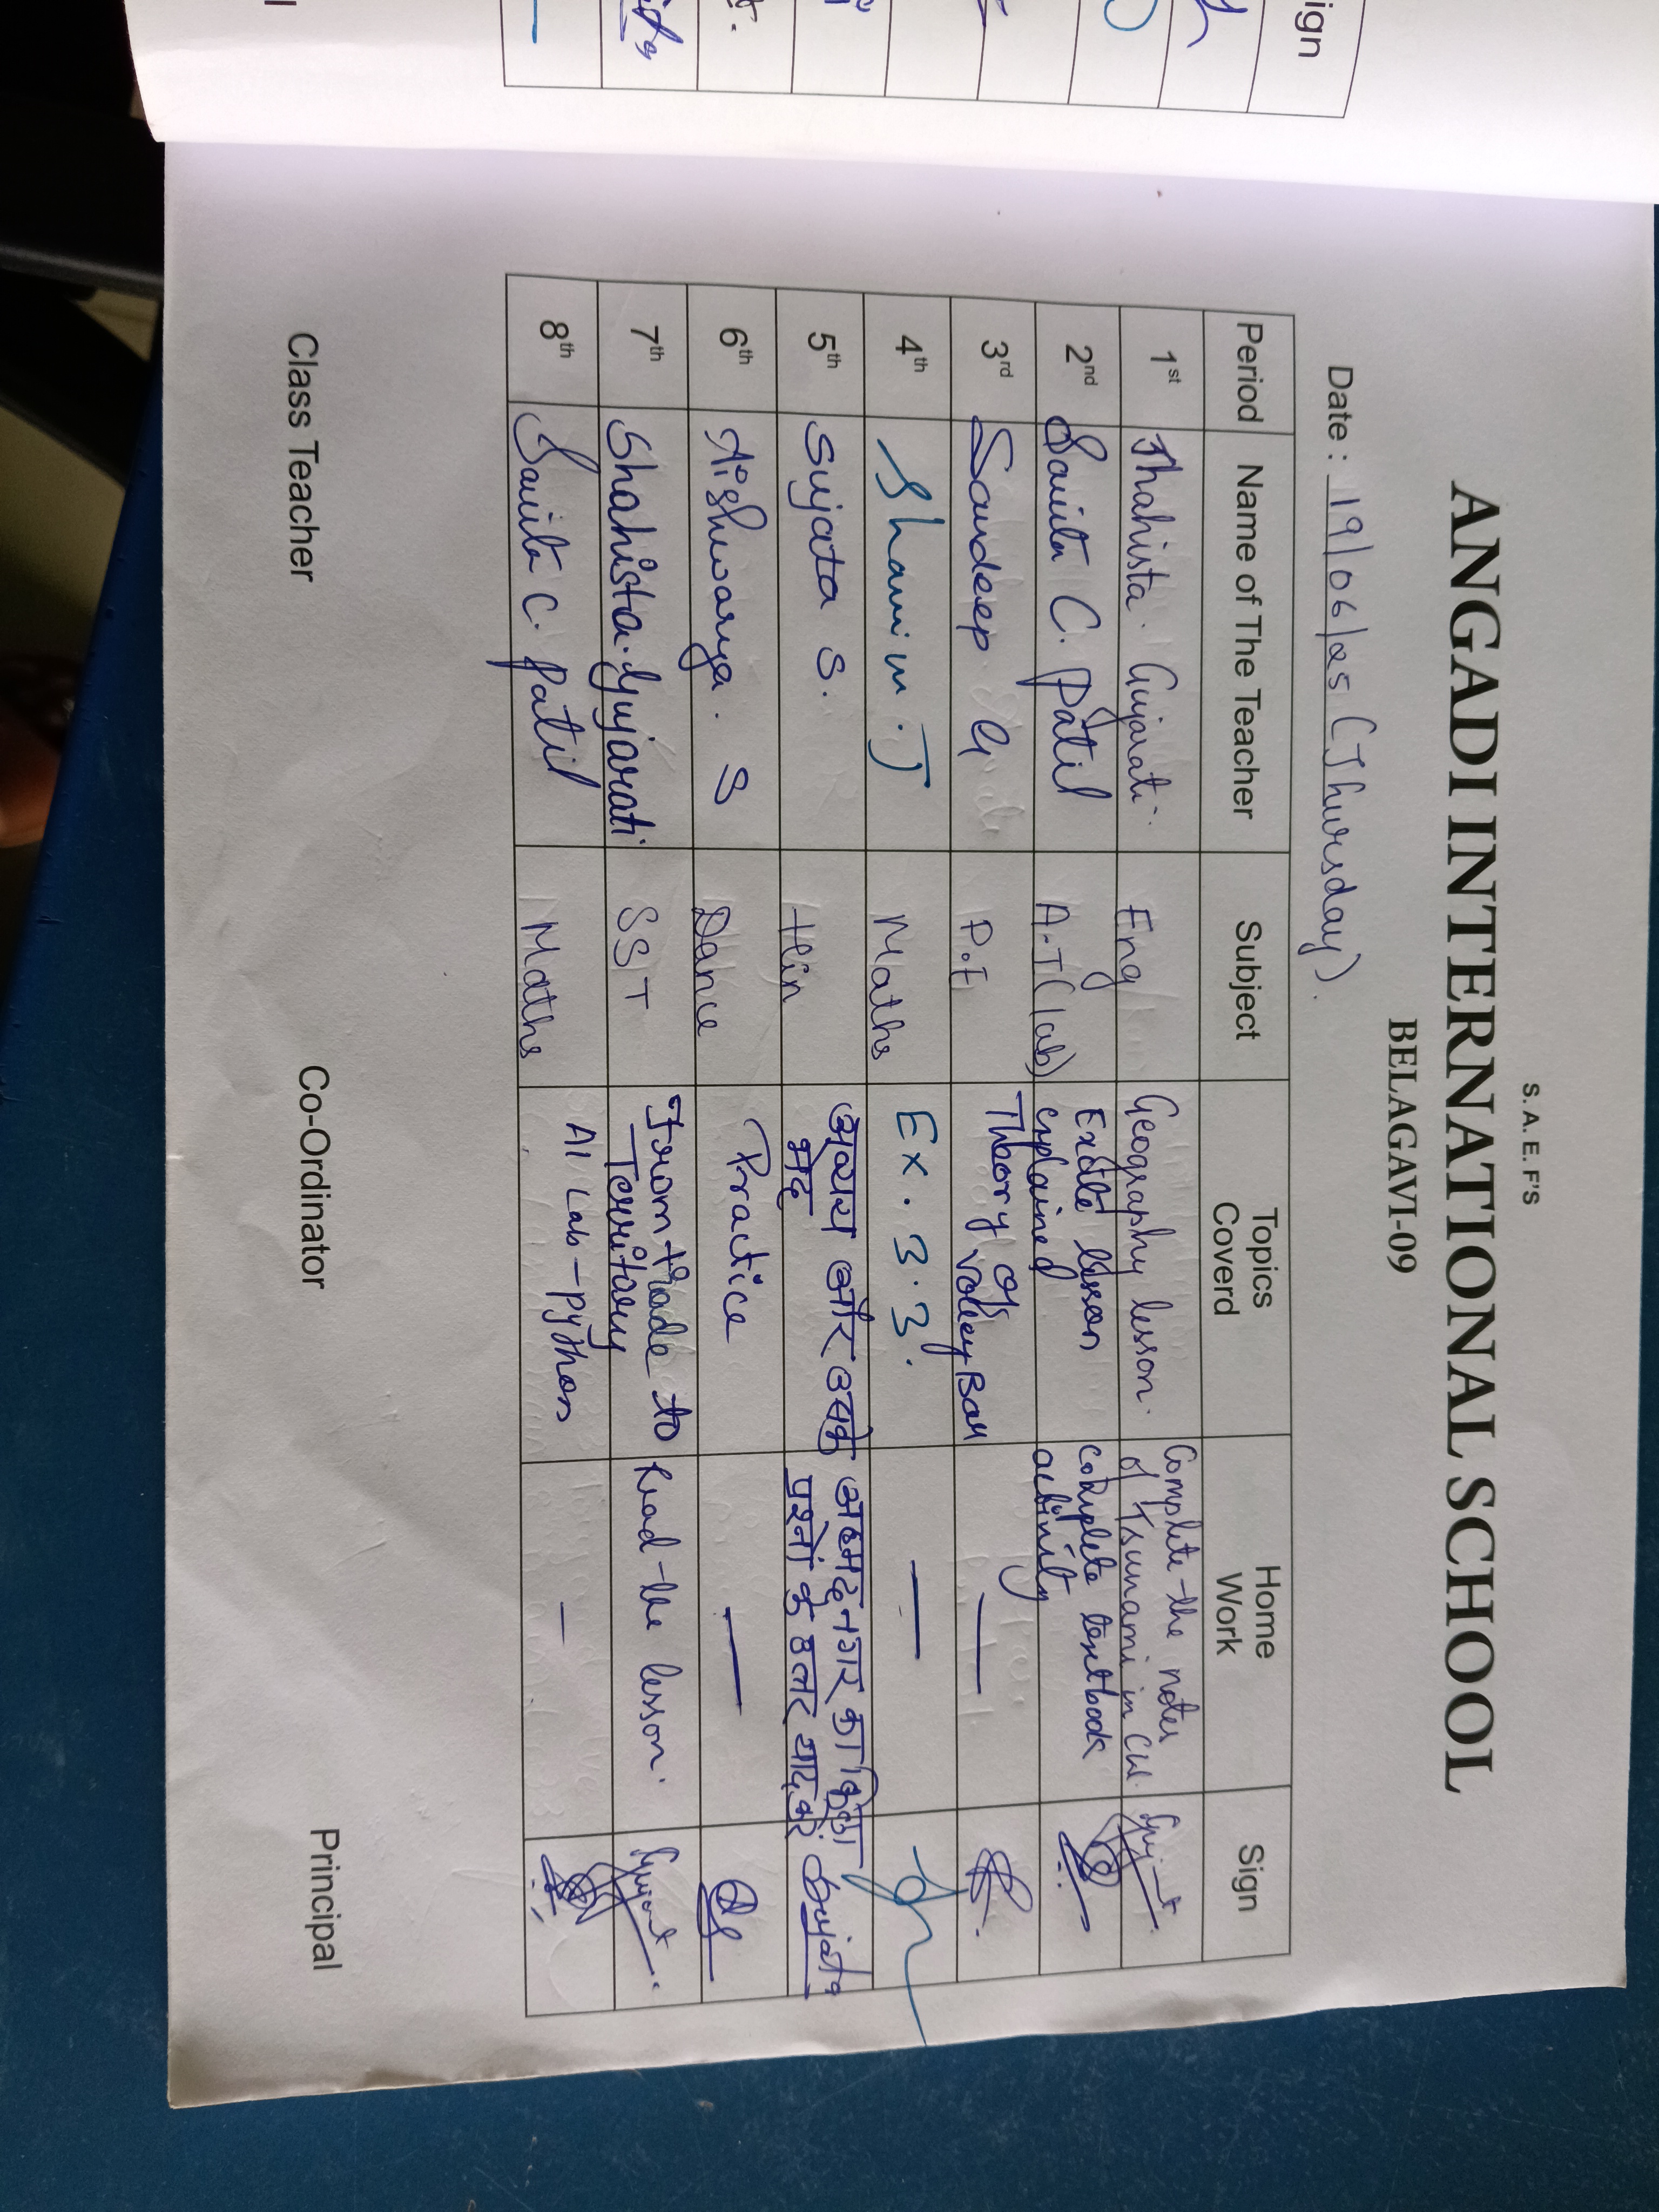 S. A. E. F'S
ANGADI INTERNATIONAL SCHOOL
BELAGAVI-09
Date : 19/06/25 (Thursday).
Period Name of The Teacher Subject Topics Coverd Home Work Sign
1st Shahista. Gujarati. Eng Geography lesson. Complete the notes of Tsunami in CW.
2nd Savita C. Patil A.I (lab) Excite lesson explained complete textbook activity
3rd Sandeep. G P.E Theory of VolleyBall —
4th Shamim. J Maths Ex. 3.3. —
5th Sujata S. Hin अव्यय और उसके भेद अहमदनगर का किला प्रश्नों के उत्तर याद करें. Sujata
6th Aishwarya. S Dance Practice —
7th Shahista. Gujarati SST From trade to Territory Read the lesson.
8th Savita C. Patil Maths AI Lab - python —
Class Teacher Co-Ordinator Principal
ign